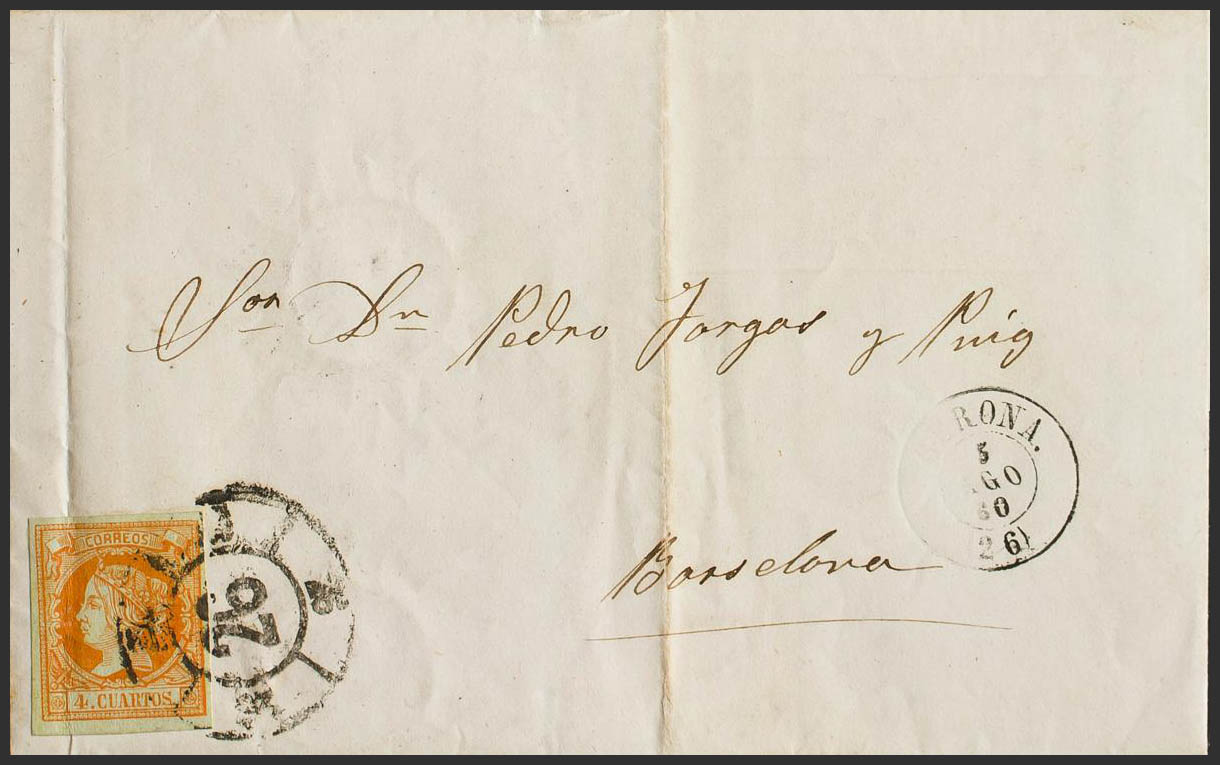 Sor Dn Pedro Jorgas y Puig
RONA.
5
GO
60
26
Barselona
CORREOS
4. CUARTOS.